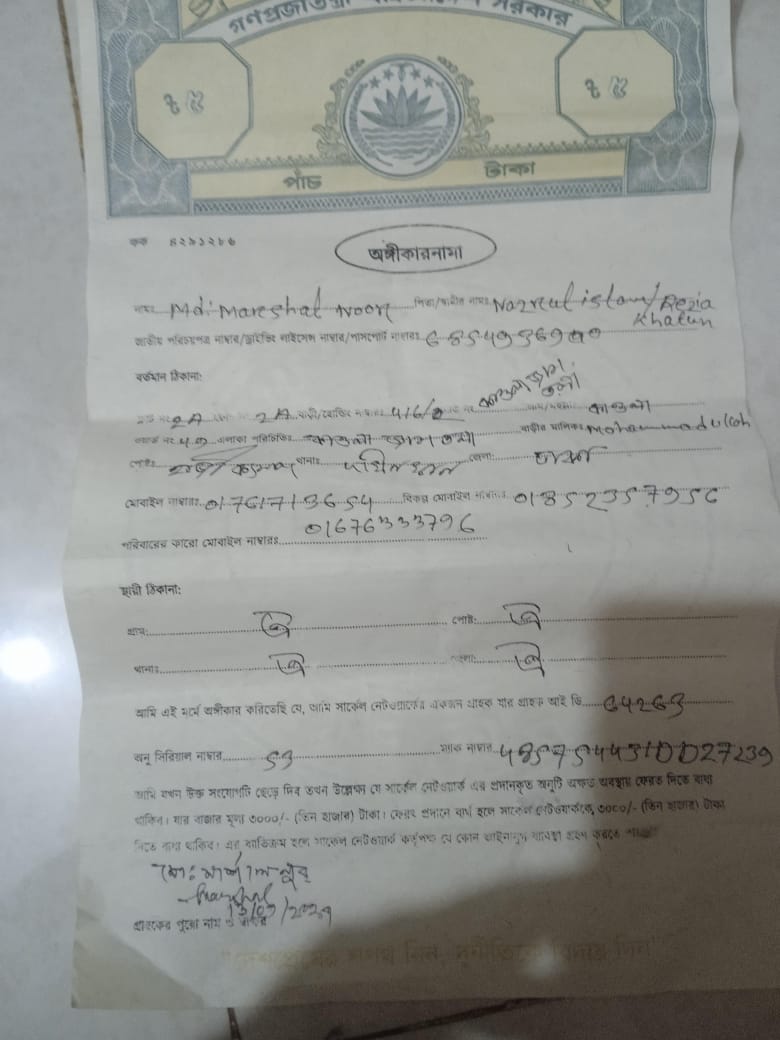 গণপ্রজাতন্ত্রী বাংলাদেশ সরকার
৳ ৫ ৳ ৫
পাঁচ টাকা
কক ৪২৯১২৮৬
অঙ্গীকারনামা
নামঃ Md: Mareshal Noor পিতা/স্বামীর নামঃ Nazrul islam/Rezia Khatun
জাতীয় পরিচয়পত্র নাম্বার/ড্রাইভিং লাইসেন্স নাম্বার/পাসপোর্ট নাম্বারঃ
বর্তমান ঠিকানা:
2A 2A বাড়ী/হোল্ডিং নাম্বারঃ 416/2 কাওলা
এলাকা পরিচিতিঃ বাড়ীর মালিকঃ Mohammad
পোষ্টঃ থানাঃ জেলাঃ ঢাকা
মোবাইল নাম্বারঃ 01761713654 বিকল্প মোবাইল নাম্বারঃ 01852357956
01676333796
পরিবারের কারো মোবাইল নাম্বারঃ
স্থায়ী ঠিকানা:
গ্রামঃ ঐ পোষ্টঃ ঐ
থানাঃ ঐ জেলাঃ ঐ
আমি এই মর্মে অঙ্গীকার করিতেছি যে, আমি সার্কেল নেটওয়ার্কের একজন গ্রাহক যার গ্রাহক আই ডি 64263
অনু সিরিয়াল নাম্বার 53 ম্যাক নাম্বার 485754431DD27239
আমি যখন উক্ত সংযোগটি ছেড়ে দিব তখন উল্লেখ্য যে সার্কেল নেটওয়ার্ক এর প্রদানকৃত অনুটি অক্ষত অবস্থায় ফেরত দিতে বাধ্য
থাকিব। যার বাজার মূল্য ৩০০০/- (তিন হাজার) টাকা। ফেরৎ প্রদানে ব্যর্থ হলে সার্কেল নেটওয়ার্ককে, ৩০০০/- (তিন হাজার) টাকা
দিতে বাধ্য থাকিব। এর ব্যতিক্রম হলে সার্কেল নেটওয়ার্ক কর্তৃপক্ষ যে কোন আইনানুগ ব্যবস্থা গ্রহন করতে
মোঃ মার্শাল নুর
গ্রাহকের পুরো নাম ও
"দেশপ্রেমের শপথ নিন, দুর্নীতিকে বিদায় দিন"